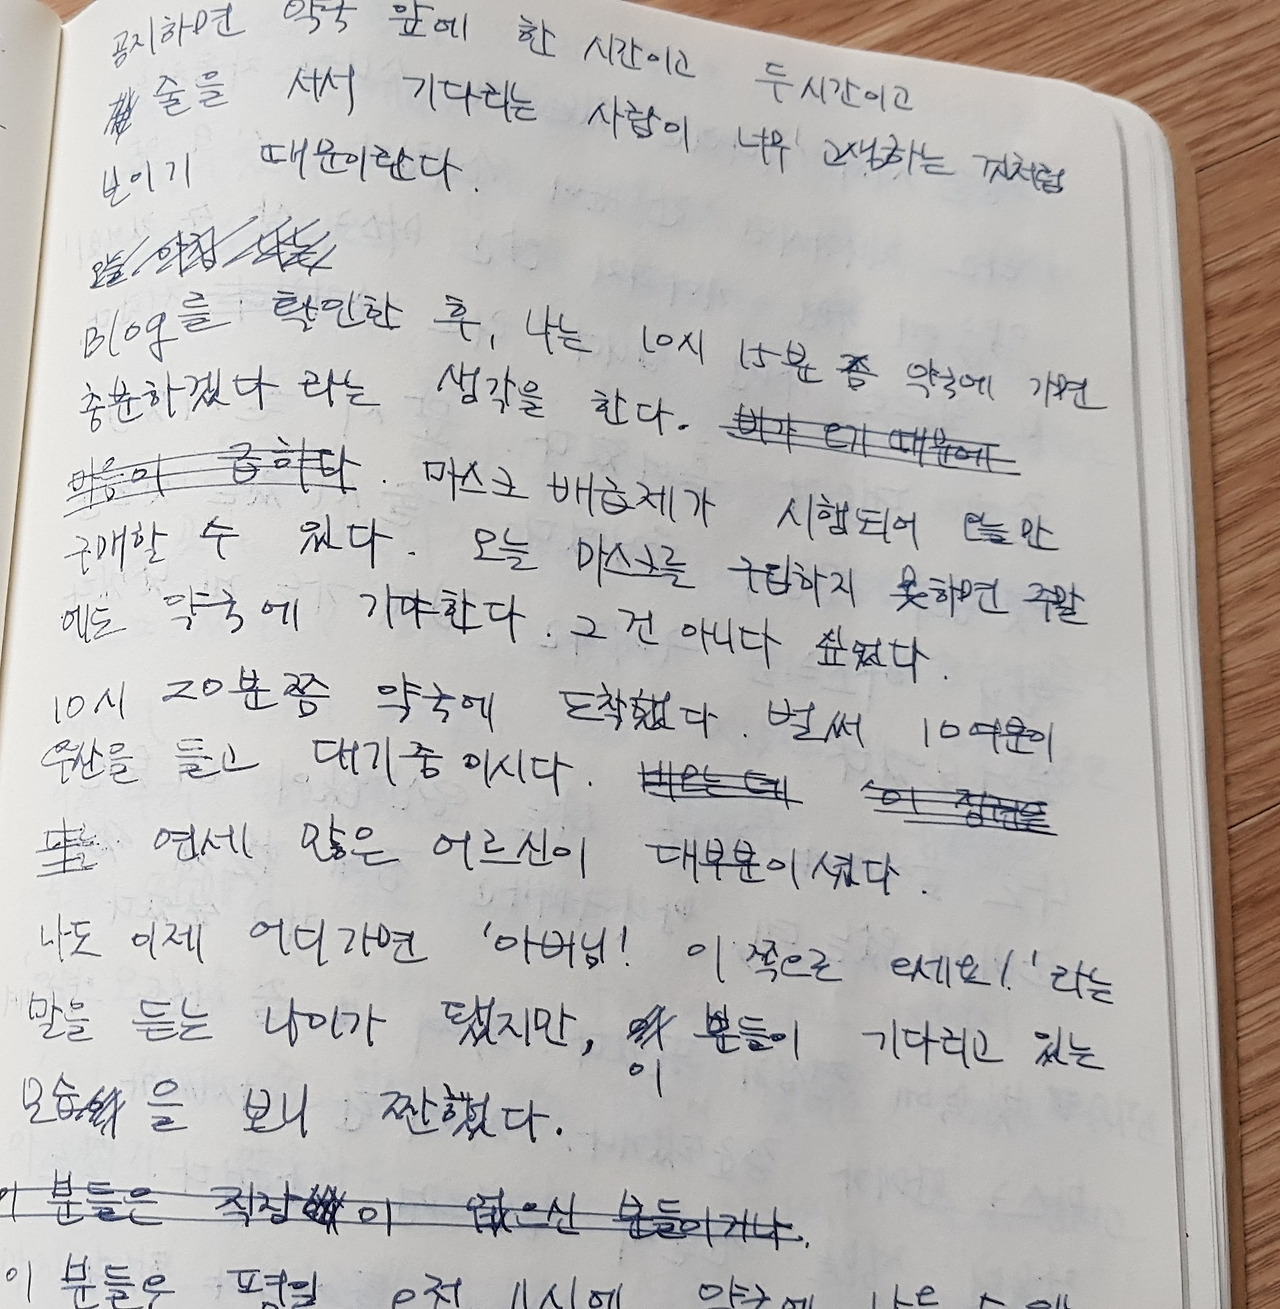 공지하면 약국 앞에 한 시간이고 두시간이고
줄을 서서 기다리는 사람이 너무 고생하는 것처럼
보이기 때문이란다.
오늘 아침 나는
Blog를 확인한 후, 나는 10시 15분 쯤 약국에 가면
충분하겠다 라는 생각을 한다. 비가 오기 때문에
마음이 급하다. 마스크 배급제가 시행되어 오늘만
구매할 수 있다. 오늘 마스크를 구입하지 못하면 주말
에도 약국에 가야한다. 그건 아니다 싶었다.
10시 20분쯤 약국에 도착했다. 벌써 10여분이
우산을 들고 대기중이시다. 비오는데 이
또는 연세 많은 어르신이 대부분이셨다.
나도 이제 어디가면 '아버님! 이 쪽으로 오세요!'라는
말을 듣는 나이가 됐지만, 이 분들이 기다리고 있는
모습을 보니 짠했다.
이 분들은 직장이 없으신 분들이거나.
이 분들은 평일 오전 11시에 약국에